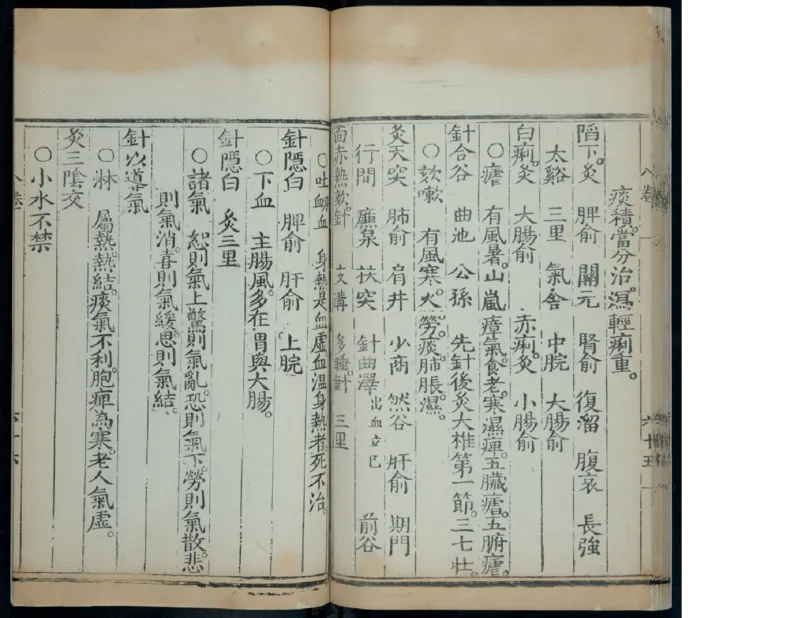 八卷
六十五
痰積。當分治。瀉輕痢重。
陷下。灸 脾俞 關元 腎俞 復溜 腹哀 長強
太谿 三里 氣舍 中脘 大腸俞
白痢。灸 大腸俞 赤痢。灸 小腸俞
○瘧 有風暑。山嵐瘴氣。食老。寒濕痺。五臟瘧。五腑瘧。
針合谷 曲池 公孫 先針後灸大椎第一節。三七壯。
○欬嗽 有風寒。火。勞。痰。肺脹。濕。
灸天突 肺俞 肩井 少商 然谷 肝俞 期門
行間 廉泉 扶突 針曲澤 出血立已 前谷
面赤熱欬。針 支溝 多睡。針 三里
○吐衂血 身熱是血虛血溫身熱者死不治。
針隱白 脾俞 肝俞 上脘
○下血 主腸風。多在胃與大腸。
針隱白 灸三里
○諸氣 怒則氣上驚則氣亂。恐則氣下。勞則氣散。悲
則氣消。喜則氣緩。思則氣結。
針以導氣
○淋 屬熱。熱結。痰氣不利。胞痺為寒。老人氣虛。
灸三陰交
○小水不禁
八卷
六十六